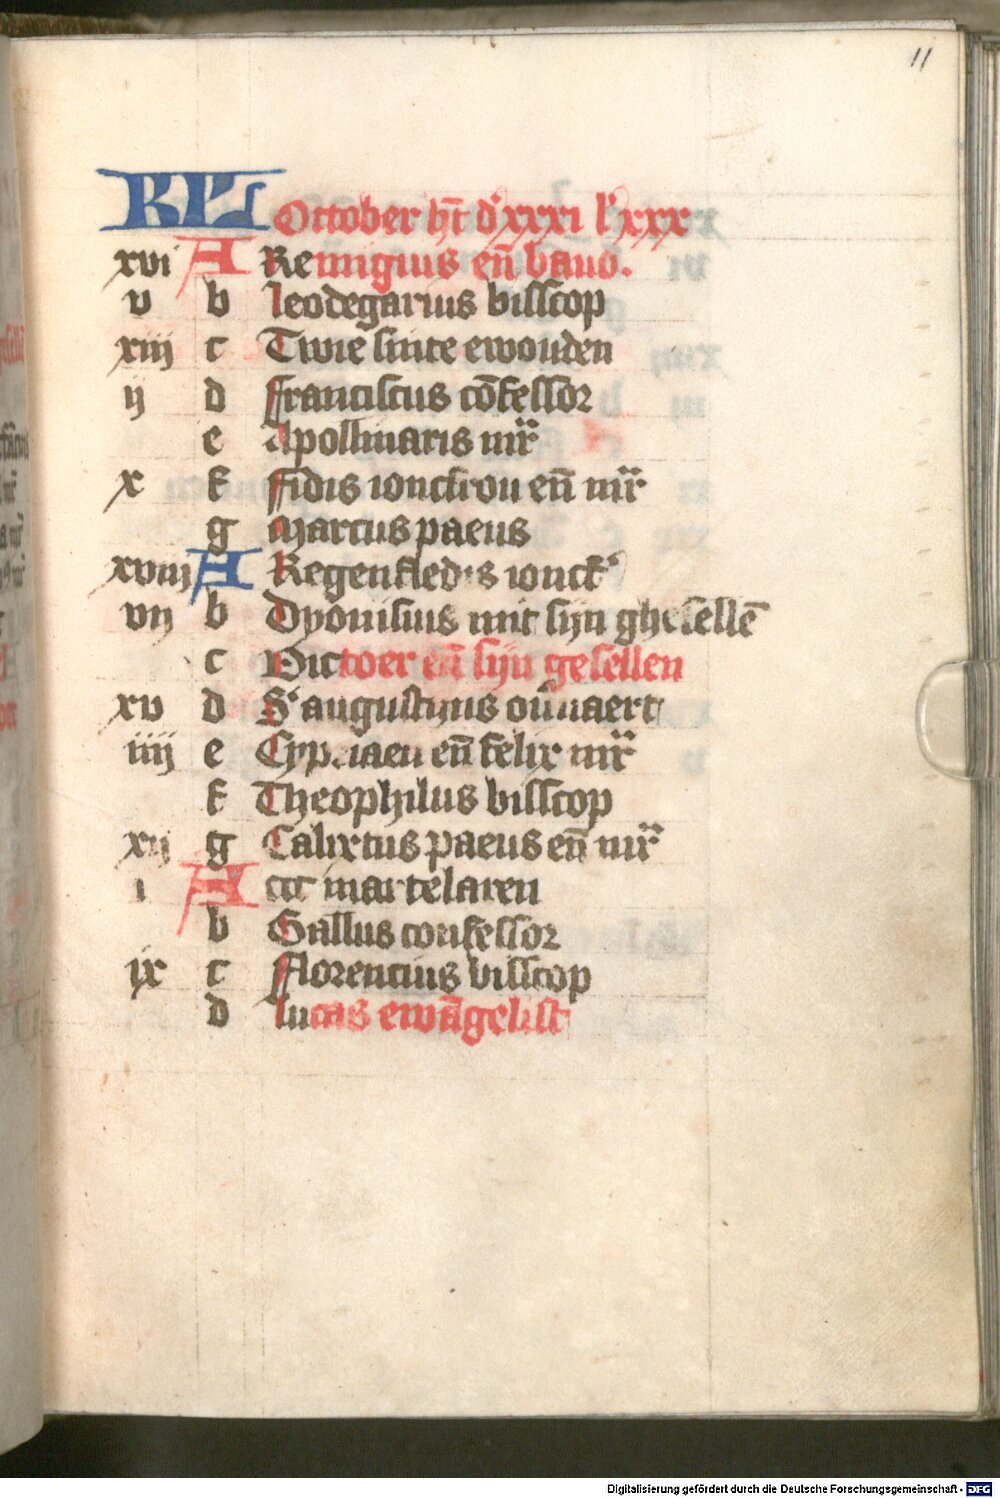 11
KL Ottober hīt d' xxxi l' xxx
xvi A Remigius en̄ bauo.
v b leodegarius bisscop
xiii c Twie sinte ewouden
ij d ffranciscus cōfessor
e Apollinaris mr̄
x f ffidis ionckfrou en̄ mr̄
g Marcus paeus
xviij A Regenfledis ionckf'
vij b Dyonisius mit sijn ghesellē
c Victoer en̄ sijn gesellen
xv d S' augustijns ou̅uaert
iiij e Cypriaen en̄ felix mr̄
f Theophilus bisscop
xij g Calixtus paeus en̄ mr̄
i A ccc martelaren
b Gallus confessor
ix c fflorencius bisscop
d lucas ewāgelist
Digitalisierung gefördert durch die Deutsche Forschungsgemeinschaft - DFG